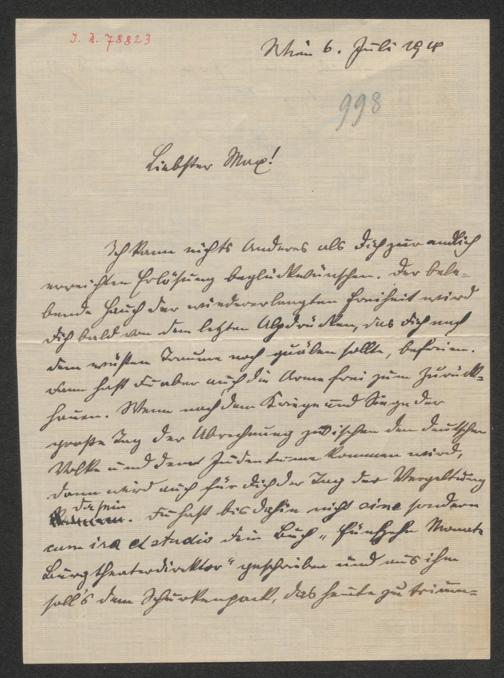 J. N. 78823
Wien 6. Juli 1918
998
Liebster Max!
Ich kann nichts Anderes als Dich zur endlich
erreichten Erlösung beglückwünschen. Der bele-
bende Hauch der wiedererlangten Freiheit wird
Dich bald von den letzten Alpdrücken, das Dich nach
dem wüsten Traume noch quälen sollte, befreien.
Dann hast Du aber auch die Arme frei zum Zurück-
hauen. Wenn nach dem Kriege und Siege der
große Tag der Abrechnung zwischen dem deutschen
Volke und dem Judentume kommen wird,
dann wird auch für Dich der Tag der Vergeltung
da sein
. Du hast bis dahin nicht sine sondern
cum ira et studio dein Buch „Fünfzehn Monate
Burgtheaterdirektor" geschrieben und aus ihm
soll's dem Schurkenpack, das heute zu trium-